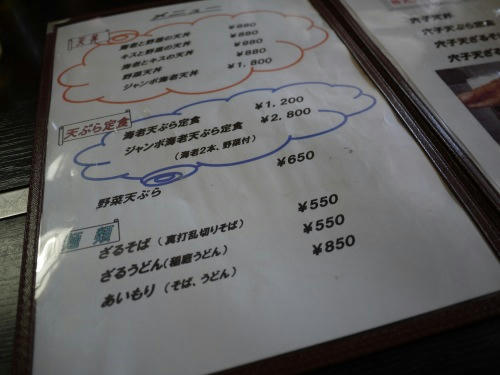 メニュー
天丼
海老と野菜の天丼 ¥880
キスと野菜の天丼 ¥880
海老とキスの天丼 ¥980
野菜天丼 ¥880
ジャンボ海老天丼 ¥1,800
天ぷら定食
海老天ぷら定食 ¥1,200
ジャンボ海老天ぷら定食 ¥2,800
(海老2本、野菜付)
野菜天ぷら ¥650
麺類
ざるそば (真打乱切りそば) ¥550
ざるうどん(稲庭うどん) ¥550
あいもり (そば、うどん) ¥850
穴子天丼
穴子天ぷら定
穴子天ざるそ
穴子天ざ